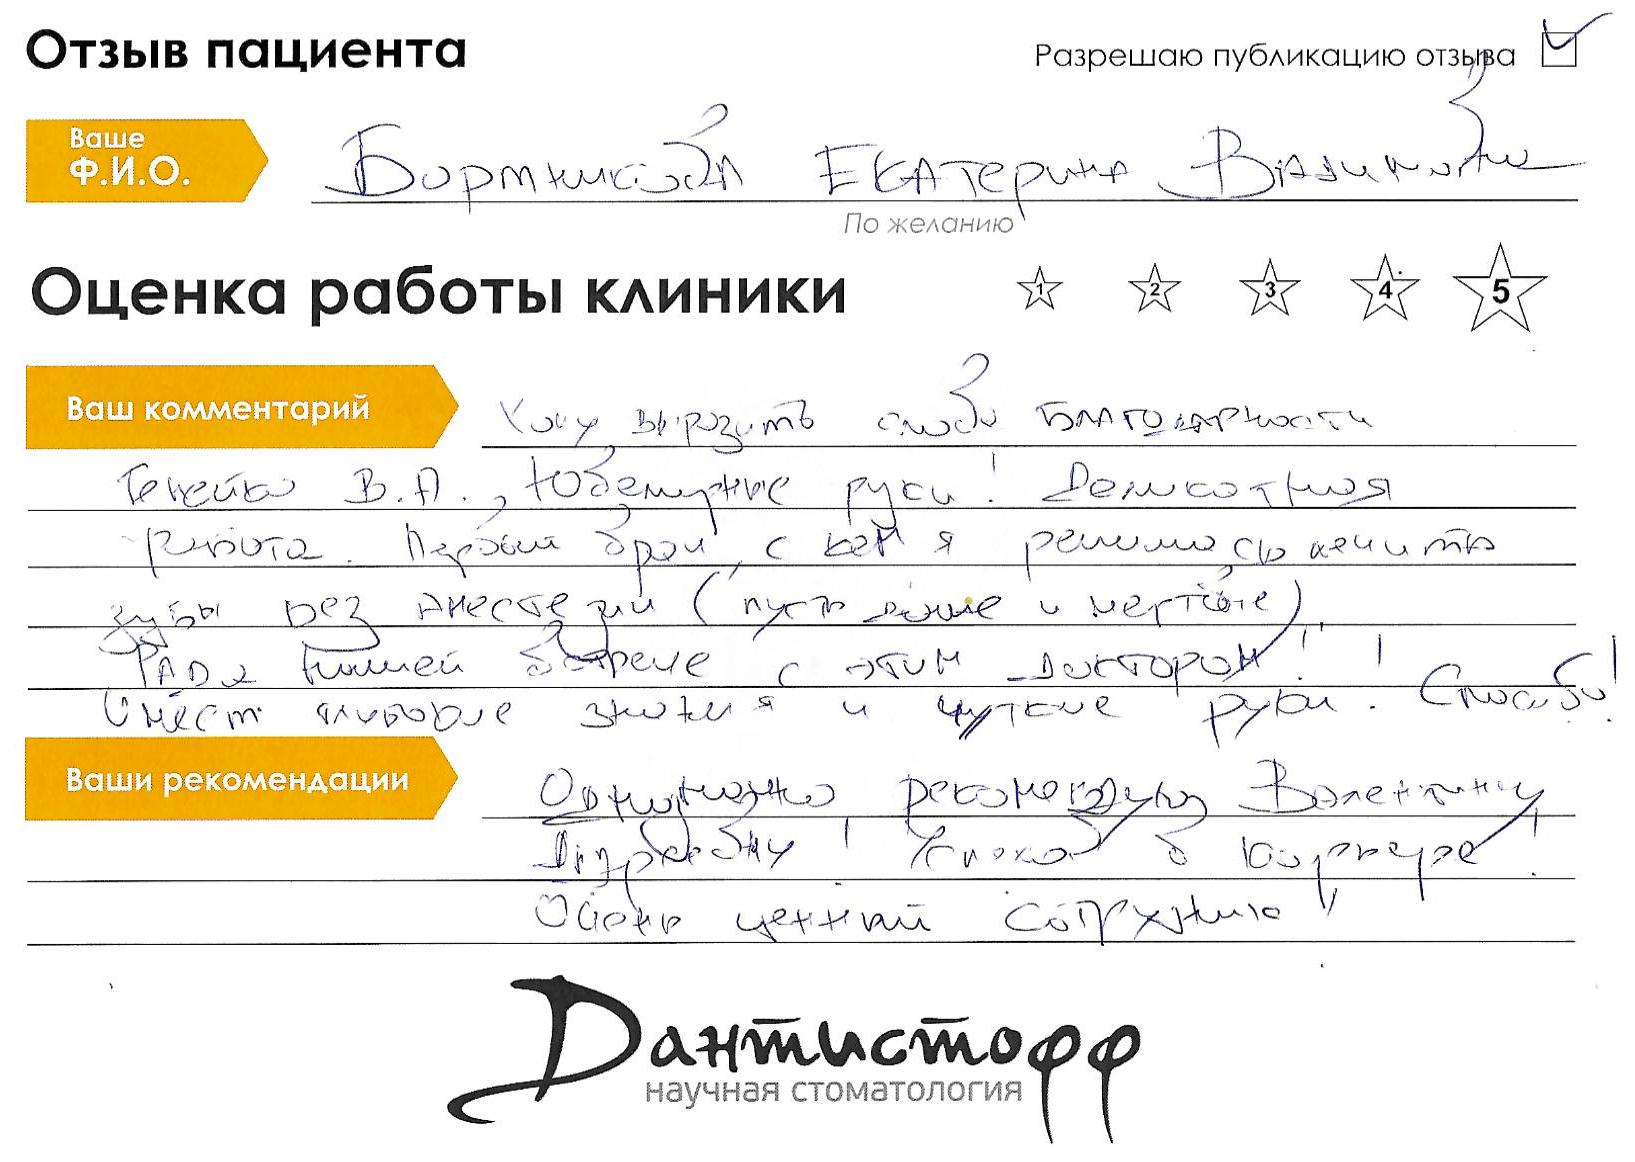 Отзыв пациента
Разрешаю публикацию отзыва
Ваше
Ф.И.О.
Бортникова Екатерина Вадимовна
По желанию
Оценка работы клиники
1 2 3 4 5
Ваш комментарий
Хочу выразить слова благодарности
В.А., Ювелирные руки! Деликатная
работа. Первый врач, с кем я решилась лечить
зубы без анестезии (пусть даже и мертвые)
Рада нашей встрече с этим доктором!!
глубокие знания и чуткие руки! Спасибо!
Ваши рекомендации
Однозначно рекомендую Валентину
Андреевну! Успехов в карьере!
Очень ценный сотрудник!
Дантистофф
научная стоматология